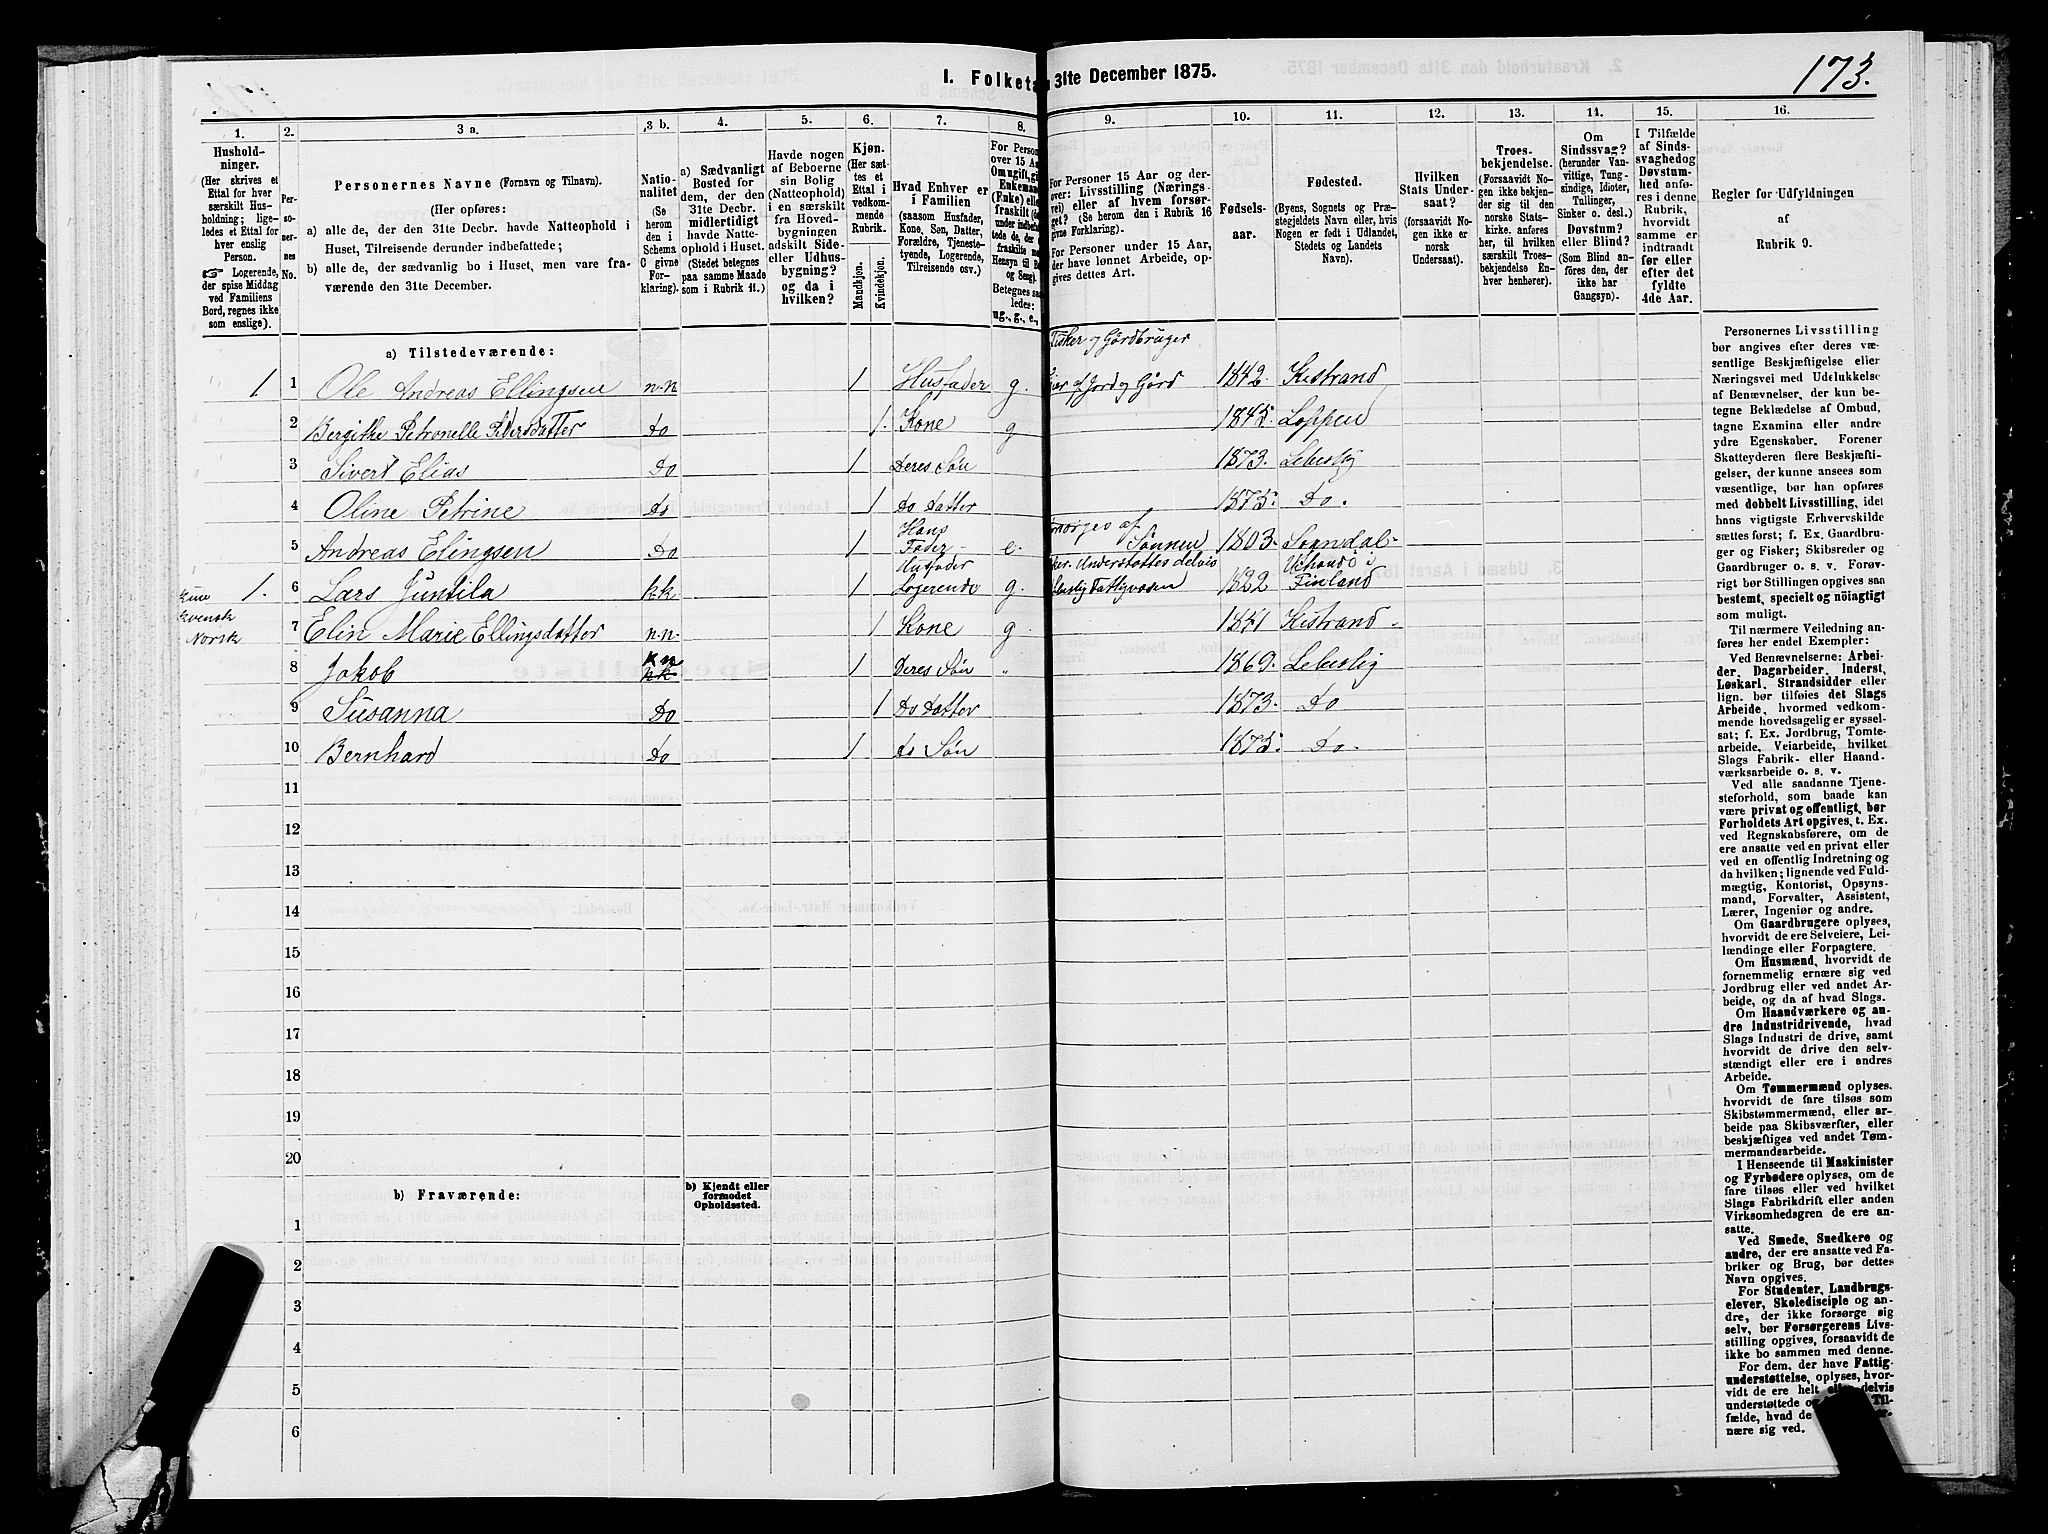 173.
I. Folketæ 31te December 1875.
1. 2. 3 a. 3 b. 4. 5. 6. 7. 8. 9. 10. 11. 12. 13. 14. 15. 16.
Husholdninger.
(Her skrives et Ettal for hver særskilt Husholdning; ligeledes et Ettal for hver enslig Person.
☞ Logerende, der spise Middag ved Familiens Bord, regnes ikke som enslige).
Personernes No.
Personernes Navne (Fornavn og Tilnavn).
(Her opføres:
a) alle de, der den 31te Decbr. havde Natteophold i Huset, Tilreisende derunder indbefattede;
b) alle de, der sædvanlig bo i Huset, men vare fraværende den 31te December.
Nationalitet (Se herom den i Schema C givne Forklaring).
a) Sædvanligt Bosted for dem, der den 31te Decbr. midlertidigt havde Natteophold i Huset. (Stedet betegnes paa samme Maade som i Rubrik 11.)
Havde nogen af Beboerne sin Bolig (Natteophold) i en særskilt fra Hovedbygningen adskilt Side- eller Udhusbygning? og da i hvilken?
Kjøn.
(Her sættes et Ettal i vedkommende Rubrik.
Mandkjøn. Kvindekjøn.
Hvad Enhver er i Familien
(saasom Husfader, Kone, Søn, Datter, Forældre, Tjenestetyende, Logerende, Tilreisende osv.)
For Person
over 15 Aa
Om ugift, gif
Enkeman
(Enke) elle
fraskilt
Betegnes saa
ledes:
ug., g., e.,
For Personer 15 Aar og derover: Livsstilling (Næringsvei) eller af hvem forsørget? (Se herom den i Rubrik 16 givne Forklaring).
For Personer under 15 Aar, der have lønnet Arbeide, opgives dettes Art.
Fødselsaar.
Fødested.
(Byens, Sognets og Præstegjeldets Navn eller, hvis Nogen er født i Udlandet, Stedets og Landets Navn).
Hvilken Stats Undersaat?
(forsaavidt Nogen ikke er norsk Undersaat).
Troesbekjendelse.
(Forsaavidt Nogen ikke bekjender sig til den norske Statskirke, anføres her, til hvilken særskilt Troesbekjendelse Enhver henhører).
Om Sindssvag?
(herunder Vanvittige, Tungsindige, Idioter, Tullinger, Sinker o. desl.)
Døvstum? eller Blind?
(Som Blind anføres den, der ikke har Gangsyn).
I Tilfælde af Sindssvaghed og Døvstumhed anføres i denne Rubrik, hvorvidt samme er indtraadt før eller efter det fyldte 4de Aar.
Regler for Udfyldningen
af
Rubrik 9.
a) Tilstedeværende:
Fisker og Gårdbruger
1 1 Ole Andreas Ellingsen n.n 1 Husfader g. af Jord og Gård 1842. Kistrand
2 Bergithe Petronelle Petersdatter do 1. Kone g 1845. Loppen
3 Sivert Elias Do 1 Deres Søn 1873. Lebesby
4 Oline Petrine do 1 do datter 1875. Do.
5 Andreas Elingsen Do 1 Hans Fader e. af Sønnen 1803. Sogndal
6 1. Lars Juntila kk 1 Husfader Logerende g. Understøttes delvis Fattigvæsen 1822 i Finland
kvensk
Norsk
7 Elin Marie Ellingsdatter n.n. 1 Kone g 1841 Kistrand
8 Jakob kn 1 Deres Søn " 1869. Lebesby
9 Susanna Do 1 Do datter 1873. Do
10 Bernhard Do 1 do Søn 1875. Do.
11
12
13
14
15
16
17
18
19
20
b) Fraværende:
b) Kjendt eller formodet Opholdssted.
1
2
3
4
5
6
Personernes Livsstilling
bør angives efter deres væ-
sentlige Beskjæftigelse eller
Næringsvei med Udelukkelse
af Benævnelser, der kun be-
tegne Beklædelse af Ombud,
tagne Examina eller andre
ydre Egenskaber. Forener
Skatteyderen flere Beskjæfti-
gelser, der kunne ansees som
væsentlige, bør han opføres
med dobbelt Livsstilling, idet
hans vigtigste Erhvervskilde
sættes først; f. Ex. Gaardbru-
ger og Fisker; Skibsreder og
Gaardbruger o. s. v. Forøv-
rigt bør Stillingen opgives saa
bestemt, specielt og nöiagtigt
som muligt.
Til nærmere Veiledning an-
føres her endel Exempler:
Ved Benævnelserne: Arbei-
der, Dagarbeider, Inderst,
Løskarl, Strandsidder eller
lign. bør tilføies det Slags
Arbeide, hvormed vedkom-
mende hovedsagelig er syssel-
sat; f. Ex. Jordbrug, Tomte-
arbeide, Veiarbeide, hvilket
Slags Fabrik- eller Haand-
værksarbeide o. s. v.
Ved alle saadanne Tjene-
steforhold, som baade kan
være privat og offentligt, bør
Forholdets Art opgives, t. Ex.
ved Regnskabsførere, om de
ere ansatte ved en privat eller
ved en offentlig Indretning og
da hvilken; lignende ved Fuld-
mægtig, Kontorist, Opsyns-
mand, Forvalter, Assistent,
Lærer, Ingeniør og andre.
Om Gaardbrugere oplyses,
hvorvidt de ere Selveiere, Lei-
lændinge eller Forpagtere.
Om Husmænd, hvorvidt de
fornemmelig ernære sig ved
Jordbrug eller ved andet Ar-
beide, og da af hvad Slags.
Om Haandværkere og an-
dre Industridrivende, hvad
Slags Industri de drive, samt
hvorvidt de drive den selv-
stændigt eller ere i andres
Arbeide.
Om Tømmermænd oplyses,
hvorvidt de fare tilsøs som
Skibstømmermænd, eller ar-
beide paa Skibsværfter, eller
beskjæftiges ved andet Tøm-
mermandsarbeide.
I Henseende til Maskinister
og Fyrbødere oplyses, om de
fare tilsøs eller ved hvilket
Slags Fabrikdrift eller anden
Virksomhedsgren de ere an-
satte.
Ved Smede, Snedkere og
andre, der ere ansatte ved Fa-
briker og Brug, bør dettes
Navn opgives.
For Studenter, Landbrugs-
elever, Skoledisciple og an-
dre, der ikke forsørge sig
selv, bør Forsørgerens Livs-
stilling opgives, forsaavidt de
ikke bo sammen med denne.
For dem, der have Fattig-
understøttelse, oplyses, hvor-
vidt de ere helt delvis
understøttede Til-
fælde, hvad de
nære sig ved.